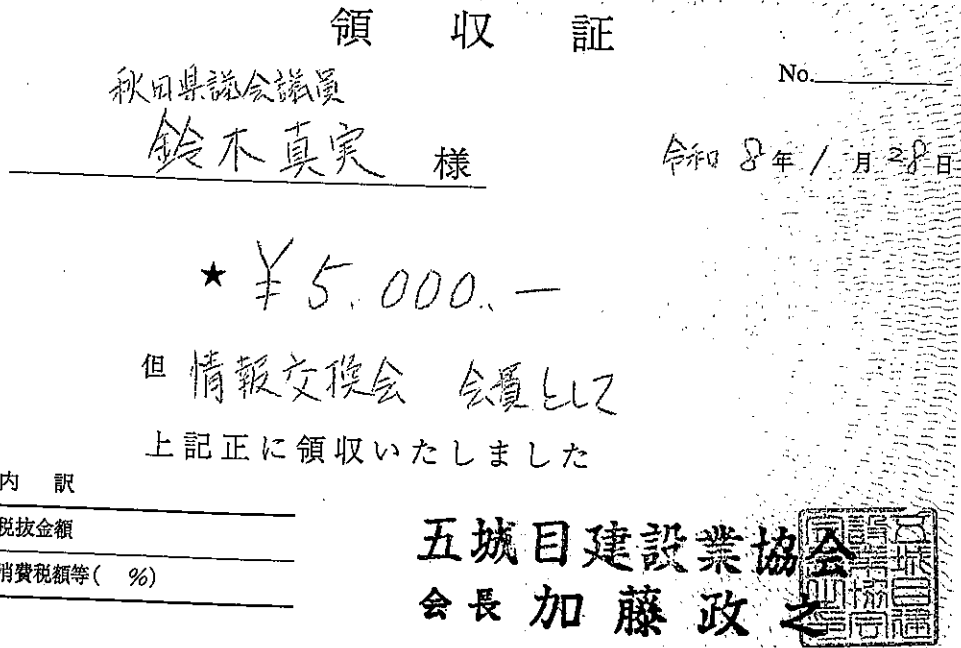 領収証
No.
秋田県議会議員
鈴木真実 様
令和 8年 1月 28日
★ ¥5,000.—
但 情報交換会 会費として
上記正に領収いたしました
内訳
税抜金額
消費税額等( %)
五城目建設業協会
会長 加藤政之